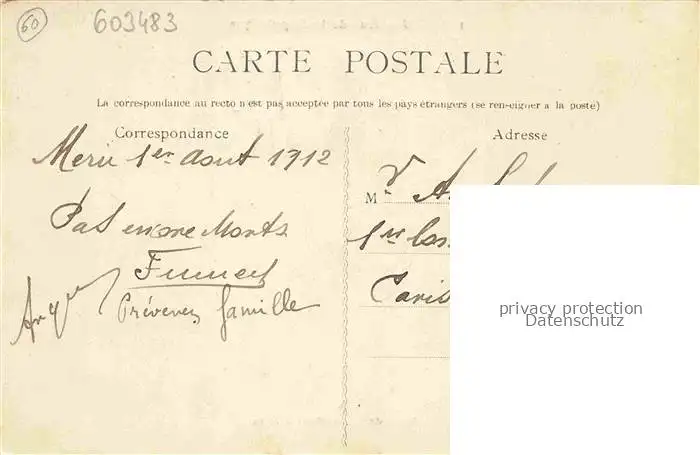 60
603483
CARTE POSTALE
La correspondance au recto n'est pas acceptée par tous les pays étrangers (se renseigner a la poste)
Correspondance
Adresse
Meru 1er Aout 1912
M
Pas encore Morts
1er
Paris
Prévenez famille
privacy protection
Datenschutz